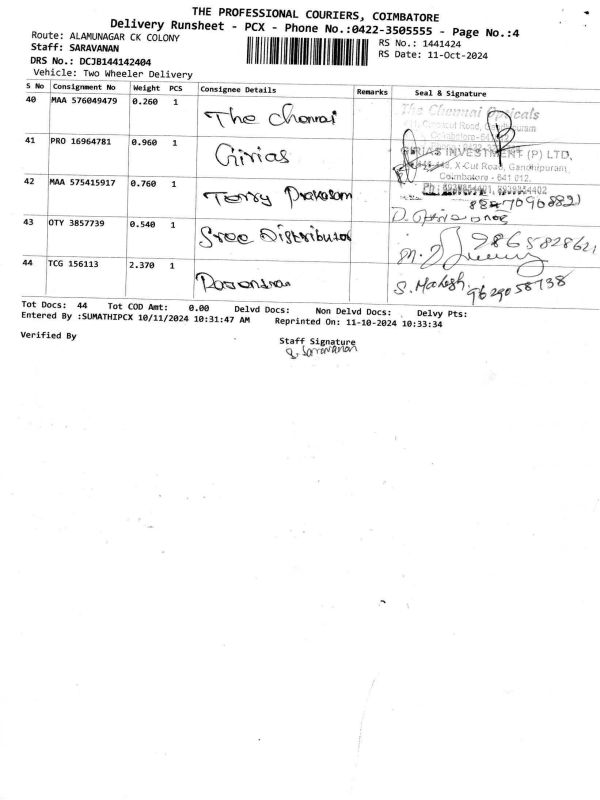 THE PROFESSIONAL COURIERS, COIMBATORE
Delivery Runsheet - PCX - Phone No.:0422-3505555 - Page No.:4
Route: ALAMUNAGAR CK COLONY
RS No.: 1441424
Staff: SARAVANAN
RS Date: 11-Oct-2024
DRS No.: DCJB144142404
Vehicle: Two Wheeler Delivery
S No Consignment No Weight PCS Consignee Details Remarks Seal & Signature
40 MAA 576049479 0.260 1 The Chennai
The Chennai Opticals
41 PRO 16964781 0.960 1 Girias
GIRIAS INVESTMENT (P) LTD,
X-Cut Road, Gandhipuram,
Coimbatore - 641 012.
42 MAA 575415917 0.760 1 Terry Prakasam
43 OTY 3857739 0.540 1 Sree Distributor
9865828621
44 TCG 156113 2.370 1
S. Mahesh 9629058738
Tot Docs: 44 Tot COD Amt: 0.00 Delvd Docs: Non Delvd Docs: Delvy Pts:
Entered By :SUMATHIPCX 10/11/2024 10:31:47 AM Reprinted On: 11-10-2024 10:33:34
Verified By
Staff Signature
S. Saravanan